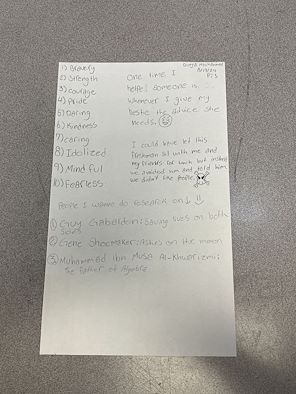 1) Bravery
2) Strength
3) Courage
4) Pride
5) Daring
6) Kindness
7) Caring
8) Idolized
9) Mindful
10) Fearless
P.5
One time I
helped someone is...
Whenever I give my
bestie the advice she
needs.
I could have let this
freshman sit with me and
my friends for lunch but instead
we avoided him and told him
we didn't like people.
People I wanna do research on
1) Guy Gabaldon: Saving lives on both
sides
2) Gene Shoemaker: Ashes on the moon
3) Muhammad ibn Musa Al-Khwarizmi:
the father of Algebra